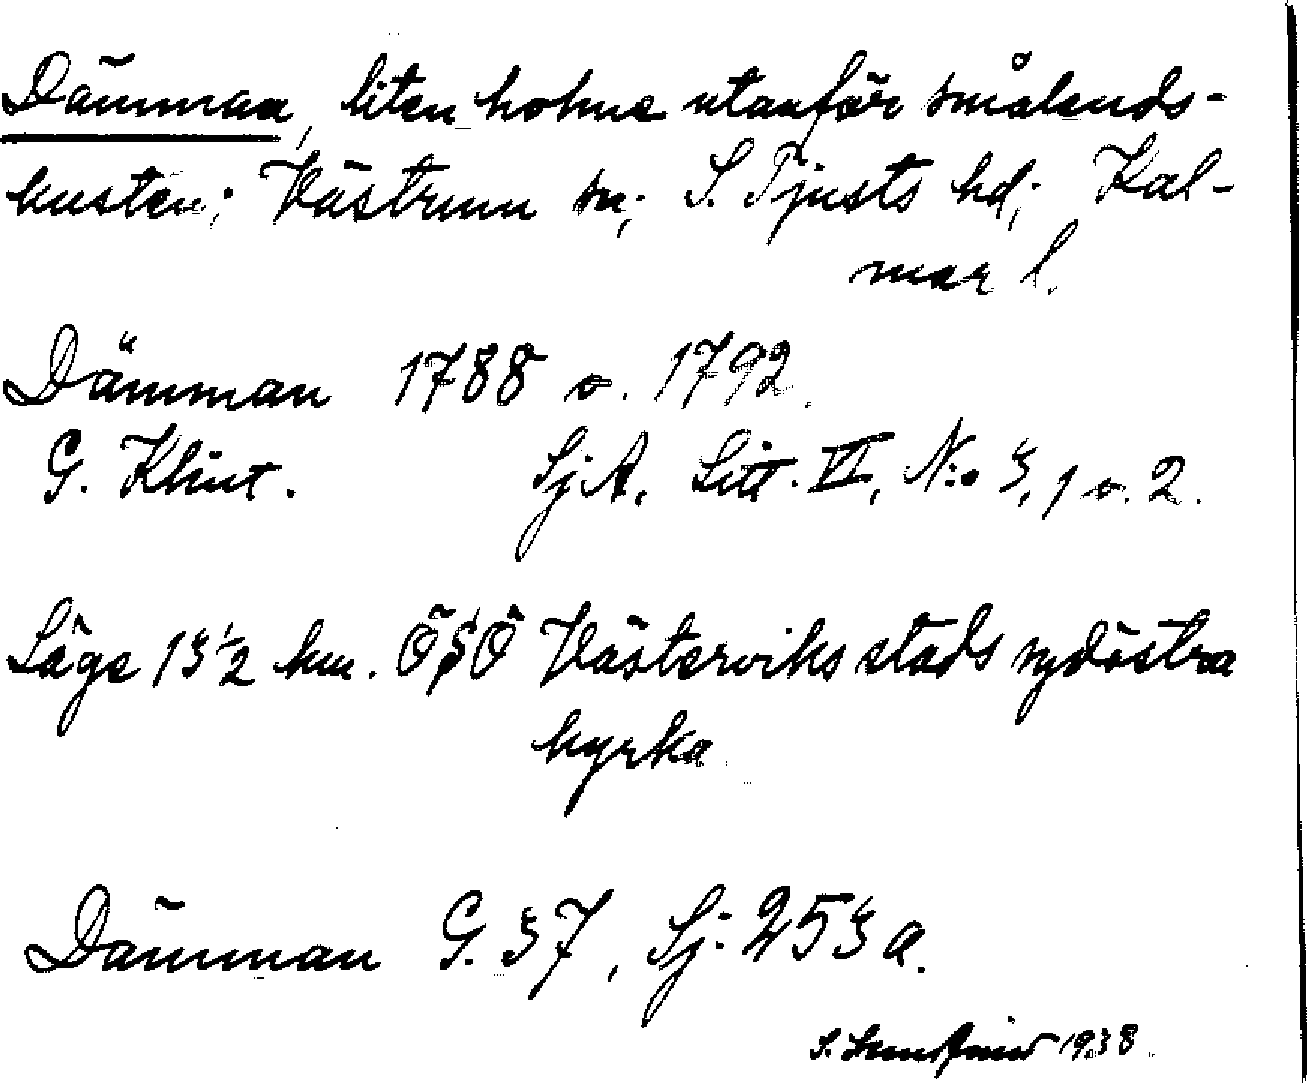 Dämman, liten holme utanför smålands-
kusten; Västrum sn; S. Tjusts hd; Kal-
mar l.
Dämman 1788 o. 1792.
G. Klint. SjA, Litt. VI, N:o 3, 1 o. 2.
Läge 13 1/2 km. ÖSÖ Västerviks stads sydöstra
kyrka.
Dämman G. 37, Sj. 253 a.
S. 1938.